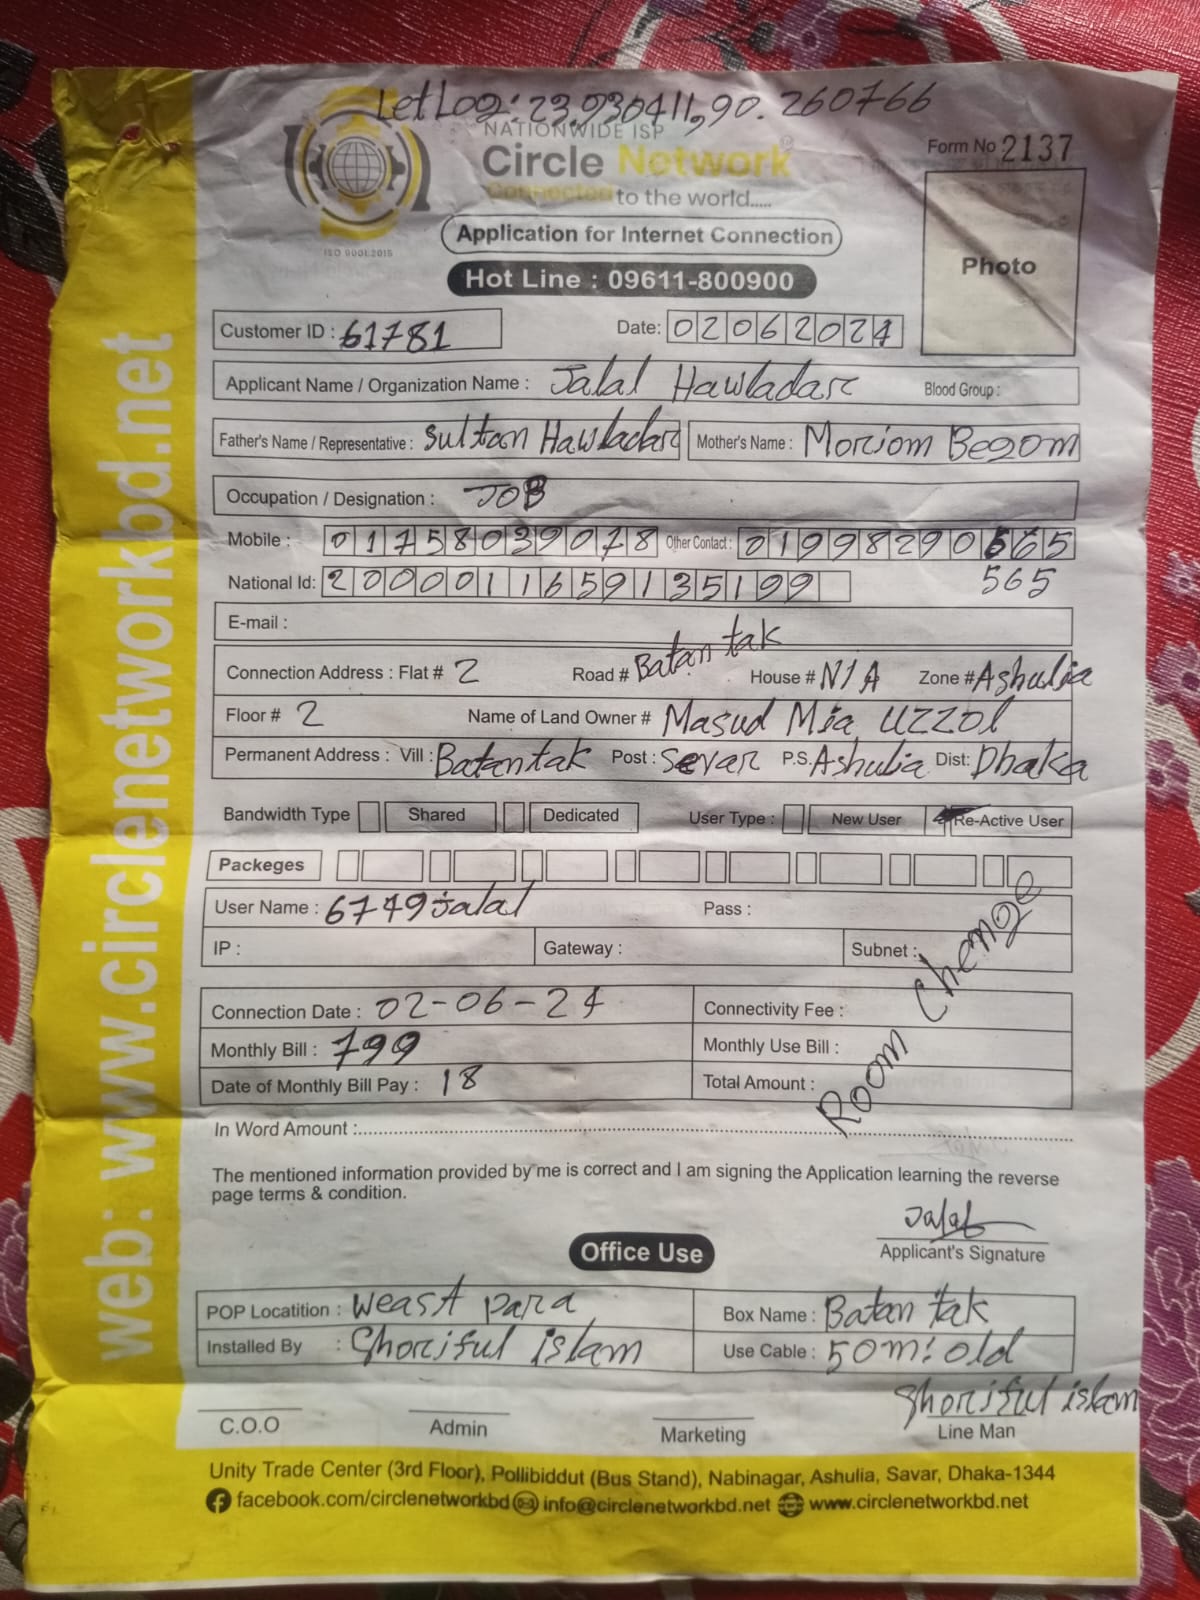 LetLog: 23.930411, 90.260766
NATIONWIDE ISP
Circle Network
Connected to the world.....
ISO 9001:2015
Form No 2137
Photo
Application for Internet Connection
Hot Line : 09611-800900
Customer ID : 61781 Date: 02062024
Applicant Name / Organization Name : Jalal Hawladar Blood Group :
Father's Name / Representative : Sultan Hawladar Mother's Name : Moriom Begom
Occupation / Designation : JOB
Mobile : 01758039078 Other Contact : 01998290565
National Id: 2000011659135199 565
E-mail :
Connection Address : Flat # 2 Road # Batan tak House # N/A Zone # Ashulia
Floor # 2 Name of Land Owner # Masud Mia Uzzol
Permanent Address : Vill : Batantak Post : Savar P.S. Ashulia Dist: Dhaka
Bandwidth Type Shared Dedicated User Type : New User Re-Active User
Packeges
User Name : 6749jalal Pass :
IP : Gateway : Subnet :
Room Chenge
Connection Date : 02-06-24 Connectivity Fee :
Monthly Bill : 799 Monthly Use Bill :
Date of Monthly Bill Pay : 18 Total Amount :
In Word Amount :
The mentioned information provided by me is correct and I am signing the Application learning the reverse
page terms & condition.
Jalal
Applicant's Signature
Office Use
POP Locatition : Weast para Box Name : Batan tak
Installed By : Shoriful islam Use Cable : 50m: old
Shoriful islam
C.O.O Admin Marketing Line Man
Unity Trade Center (3rd Floor), Pollibiddut (Bus Stand), Nabinagar, Ashulia, Savar, Dhaka-1344
facebook.com/circlenetworkbd info@circlenetworkbd.net www.circlenetworkbd.net
web: www.circlenetworkbd.net